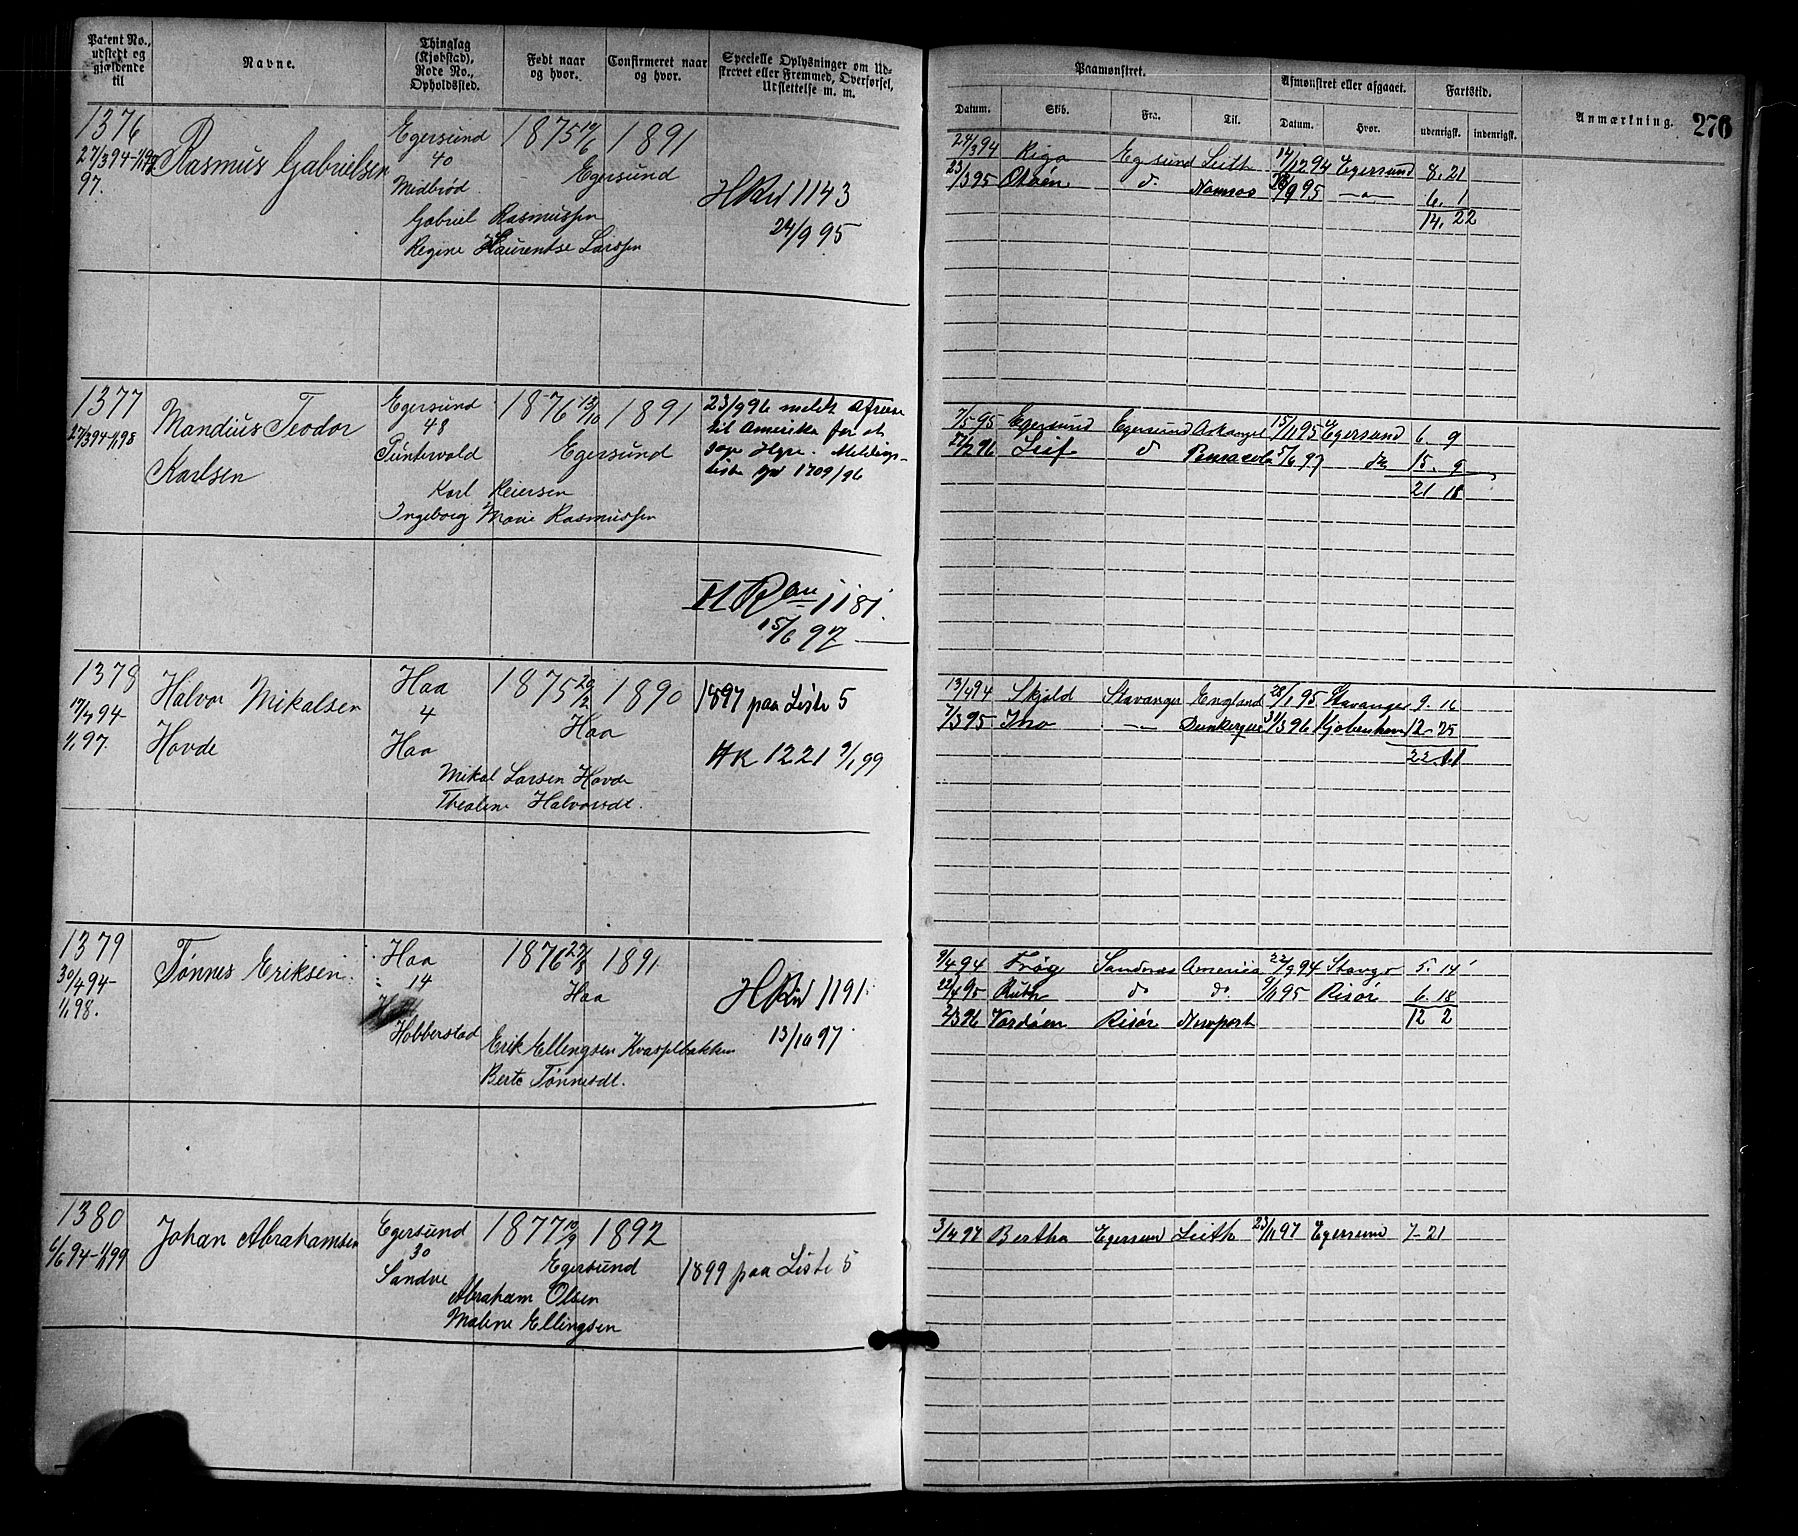 Patent No., udstedt og gjældende til
Navne.
Thinglag (Kjøbstad), Rode No., Opholdssted.
Født naar og hvor.
Confirmeret naar og hvor.
Specielle Oplysninger om Udskrevet eller Fremmed, Overførsel, Udslettelse m. m.
Paamønstret.
Afmønstret eller afgaaet.
Fartstid.
Anmærkning.
276
Datum.
Skib.
Fra.
Til.
Datum.
Hvor.
udenrigsk.
indenrigsk.
1376
27/3 94-1/1
97.
Rasmus Gabrielsen
Egersund
40
Midbrød.
1875 19/6
1891
Egersund
Gabriel Rasmussen
Regine Laurentse Larssen
1143
24/9 95
24/3 94 Riga Egersund Leith 14/12 94 Egersund 8. 21
23/3 95 d. Namsos 95 6. 1
14. 22
1377
27/3 94-1/1 98
Mandius Teodor
Karlsen
Egersund
48
1876 13/10
1891
Egersund
Karl Reiersen
Ingeborg Marie Rasmussen
23/9 96 meldt Afreise
til Amerika for at
søge Hyre. Meldings-
liste 1709/96
1181.
15/6 97
7/5 95 Egersund Egersund Arkangel 15/11 95 Egersund 6. 9
27/2 96 Leif d Pensacola 5/6 97 do 15. 9
21 18
1378
17/4 94
1/1 97.
Halvor Mikalsen
Hovde
Haa
4
Haa
1875 20/2
1890
Haa
Mikal Larsen Hovde
Thealine Halvorsdt.
1897 paa Liste 5
HK 1221 9/1 99
13/4 94 Skjold Stavanger England 28/1 95 Stavanger 9. 16
7/3 95 Ino Dunkerque 31/3 96 Kjøbenhavn 12. 25
22. 11
1379
30/4 94-
1/1 98.
Tønnes Eriksen.
Haa
14
Hobberstad
1876 27/8
1891
Haa
Erik Ellingsen
Berte Tønnesdt.
1191.
13/10 97.
9/4 94 Frøy Sandnæs America 22/9 94 5. 14
22/4 95 Ruth do do. 9/11 95 Risør 6. 18
12 2
2/3 96 Vardøen Risør Newport
1380
6/6 94-1/1 99
Johan Abrahamsen
Egersund
30
Sandve
1877 10/9
1892
Egersund
Abraham Olsen
Malene Ellingsen
1899 paa Liste 5
3/4 97 Bertha Egersund Leith 23/11 97 Egersund 7-21